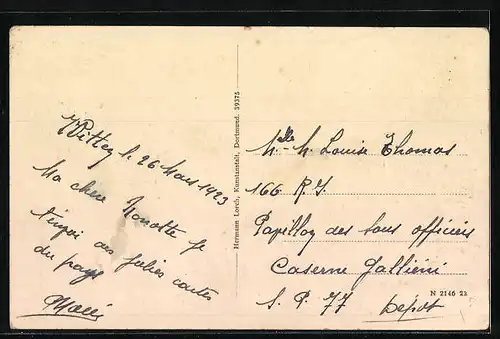 Witten le 26 Mars 1923
Ma chère Nanette je
t'envoi des jolies cartes
du pays
Hermann Lorch, Kunstanstalt, Dortmund. 59375
Mlle M. Louise Thomas
166 R.I.
Papillon des sous officiers
Caserne Galliéni
S. P. 77 Dépôt
N 2146 23